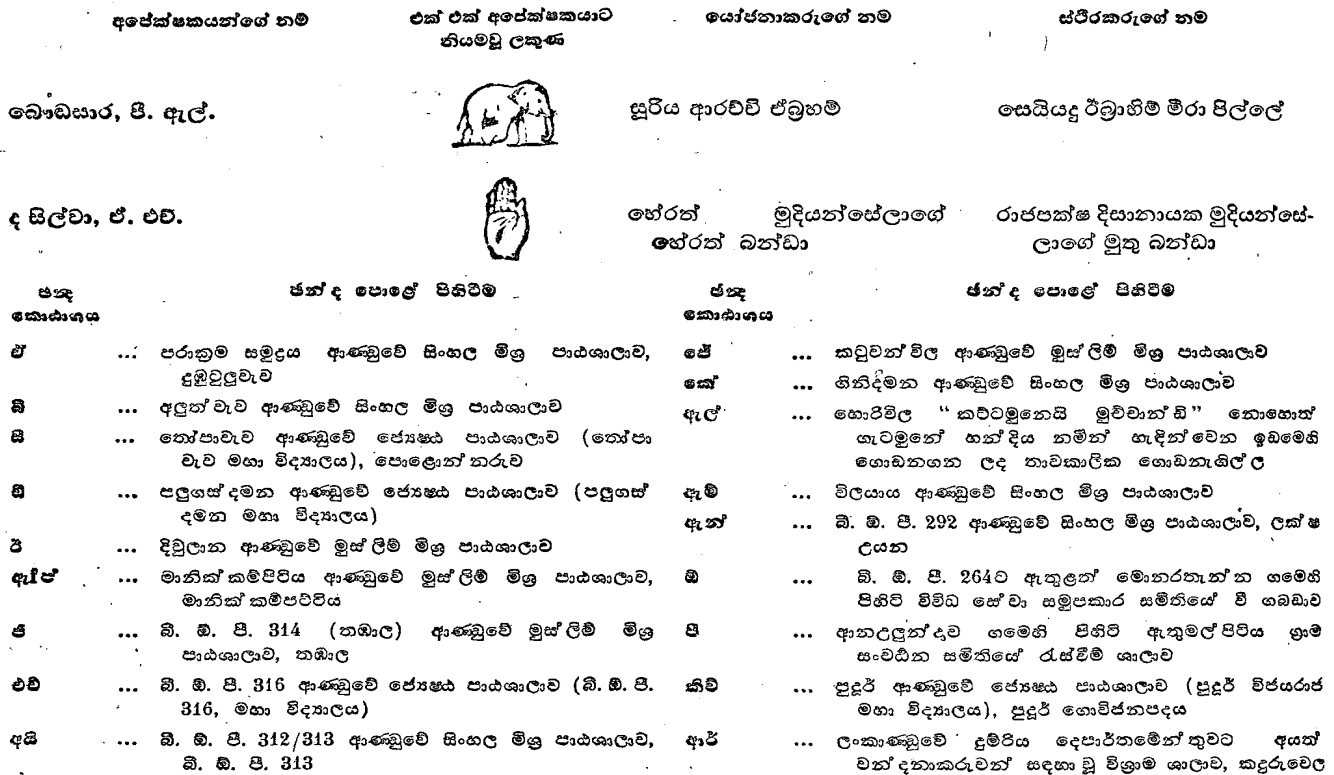 අපේක්ෂකයන්ගේ නම
එක් එක් අපේක්ෂකයාට
නියමවූ ලකුණ
යෝජනාකරුගේ නම
ස්ථිරකරුගේ නම
බෞඩසාර, පී. ඇල්.
සූරිය ආරච්චි ඒබ්‍රහම්
සෙයියදු ඊබ්‍රාහිම් මීරා පිල්ලේ
ද සිල්වා, ඒ. එච්.
හේරත් මුදියන්සේලාගේ
හේරත් බන්ඩා
රාජපක්ෂ දිසානායක මුදියන්සේ-
ලාගේ මුතු බන්ඩා
ඡන්ද
කොඨාශය
ඡන්ද පොළේ පිහිටීම
ඒ ... පරාක්‍රම සමුද්‍රය ආණ්ඩුවේ සිංහල මිශ්‍ර පාඨශාලාව,
දුඹුටුලුවැව
බී ... අලුත්වැව ආණ්ඩුවේ සිංහල මිශ්‍ර පාඨශාලාව
සී ... තෝපාවැව ආණ්ඩුවේ ජ්‍යෙෂ්ඨ පාඨශාලාව (තෝපා
වැව මහා විද්‍යාලය), පොළොන්නරුව
ඩී ... පලුගස්දමන ආණ්ඩුවේ ජ්‍යෙෂ්ඨ පාඨශාලාව (පලුගස්
දමන මහා විද්‍යාලය)
ඊ ... දිවුලාන ආණ්ඩුවේ මුස්ලිම් මිශ්‍ර පාඨශාලාව
ඇෆ් ... මානික්කම්පිටිය ආණ්ඩුවේ මුස්ලිම් මිශ්‍ර පාඨශාලාව,
මානික්කම්පට්ටිය
ජී ... බී. ඕ. පී. 314 (තඹාල) ආණ්ඩුවේ මුස්ලිම් මිශ්‍ර
පාඨශාලාව, තඹාල
එච් ... බී. ඕ. පී. 316 ආණ්ඩුවේ ජ්‍යෙෂ්ඨ පාඨශාලාව (බී. ඕ. පී.
316, මහා විද්‍යාලය)
අයි ... බී. ඕ. පී. 312/313 ආණ්ඩුවේ සිංහල මිශ්‍ර පාඨශාලාව,
බී. ඕ. පී. 313
ඡන්ද
කොඨාශය
ඡන්ද පොළේ පිහිටීම
ජේ ... කටුවන්විල ආණ්ඩුවේ මුස්ලිම් මිශ්‍ර පාඨශාලාව
කේ ... ගිනිද්මන ආණ්ඩුවේ සිංහල මිශ්‍ර පාඨශාලාව
ඇල් ... හොරිවිල “කට්ටමුනෙයි මුච්චාන්ඩි” නොහොත්
ගැටමුනේ හන්දිය නමින් හැඳින්වෙන ඉඩමෙහි
ගොඩනගන ලද තාවකාලික ගොඩනැගිල්ල
ඇම් ... විලයාය ආණ්ඩුවේ සිංහල මිශ්‍ර පාඨශාලාව
ඇන් ... බී. ඕ. පී. 292 ආණ්ඩුවේ සිංහල මිශ්‍ර පාඨශාලාව, ලක්ෂ
උයන
ඕ ... බී. ඕ. පී. 264ට ඇතුළත් මොනරතැන්න ගමෙහි
පිහිටි විවිධ සේවා සමුපකාර සමිතියේ වී ගබඩාව
පී ... ආනඋලුන්දාව ගමෙහි පිහිටි ඇතුමල්පිටිය ග්‍රාම
සංවර්ධන සමිතියේ රැස්වීම් ශාලාව
කිව් ... පුදූර් ආණ්ඩුවේ ජ්‍යෙෂ්ඨ පාඨශාලාව (පුදූර් විජයරාජ
මහා විද්‍යාලය), පුදූර් ගොවිජනපදය
ආර් ... ලංකාණ්ඩුවේ දුම්රිය දෙපාර්තමේන්තුවට අයත්
වන්දනාකරුවන් සඳහා වූ විශ්‍රාම ශාලාව, කදුරුවෙල